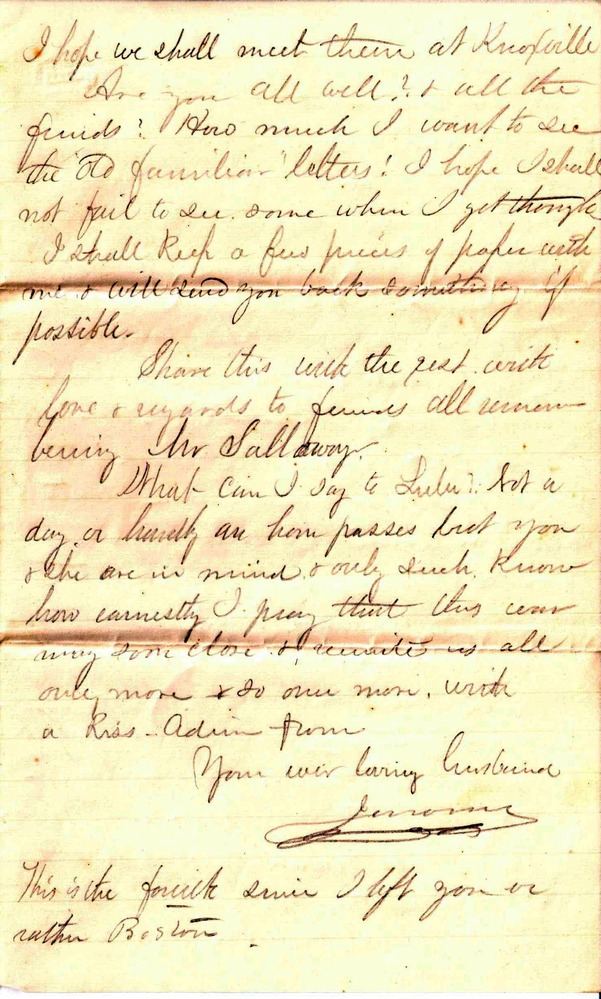 I hope we shall meet them at Knoxville
Are you all well? & all the
friends? How much I want to see
the "old familiar" letters! I hope I shall
not fail to see some when I get through
I shall keep a few pieces of paper with
me & will send you back something if
possible.
Share this with the rest with
love & regards to friends all remem
bering Mr Sallaway.
What can I say to Lulu? Not a
day or hardly an hour passes but you
& she are in mind & only such know
how earnestly I pray that this war
may soon close & reunite us all
once more & so once more, with
a kiss - Adieu from
Your ever loving husband
Jerome
This is the fourth since I left you or
rather Boston